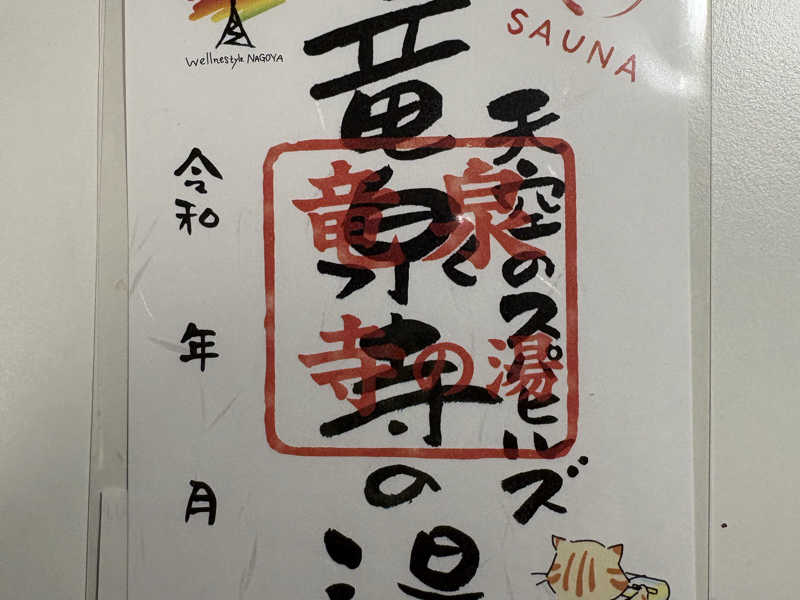 Wellnestyle NAGOYA
SAUNA
天空のスパヒルズ
竜泉寺の湯
竜泉
寺の湯
令和
年
月